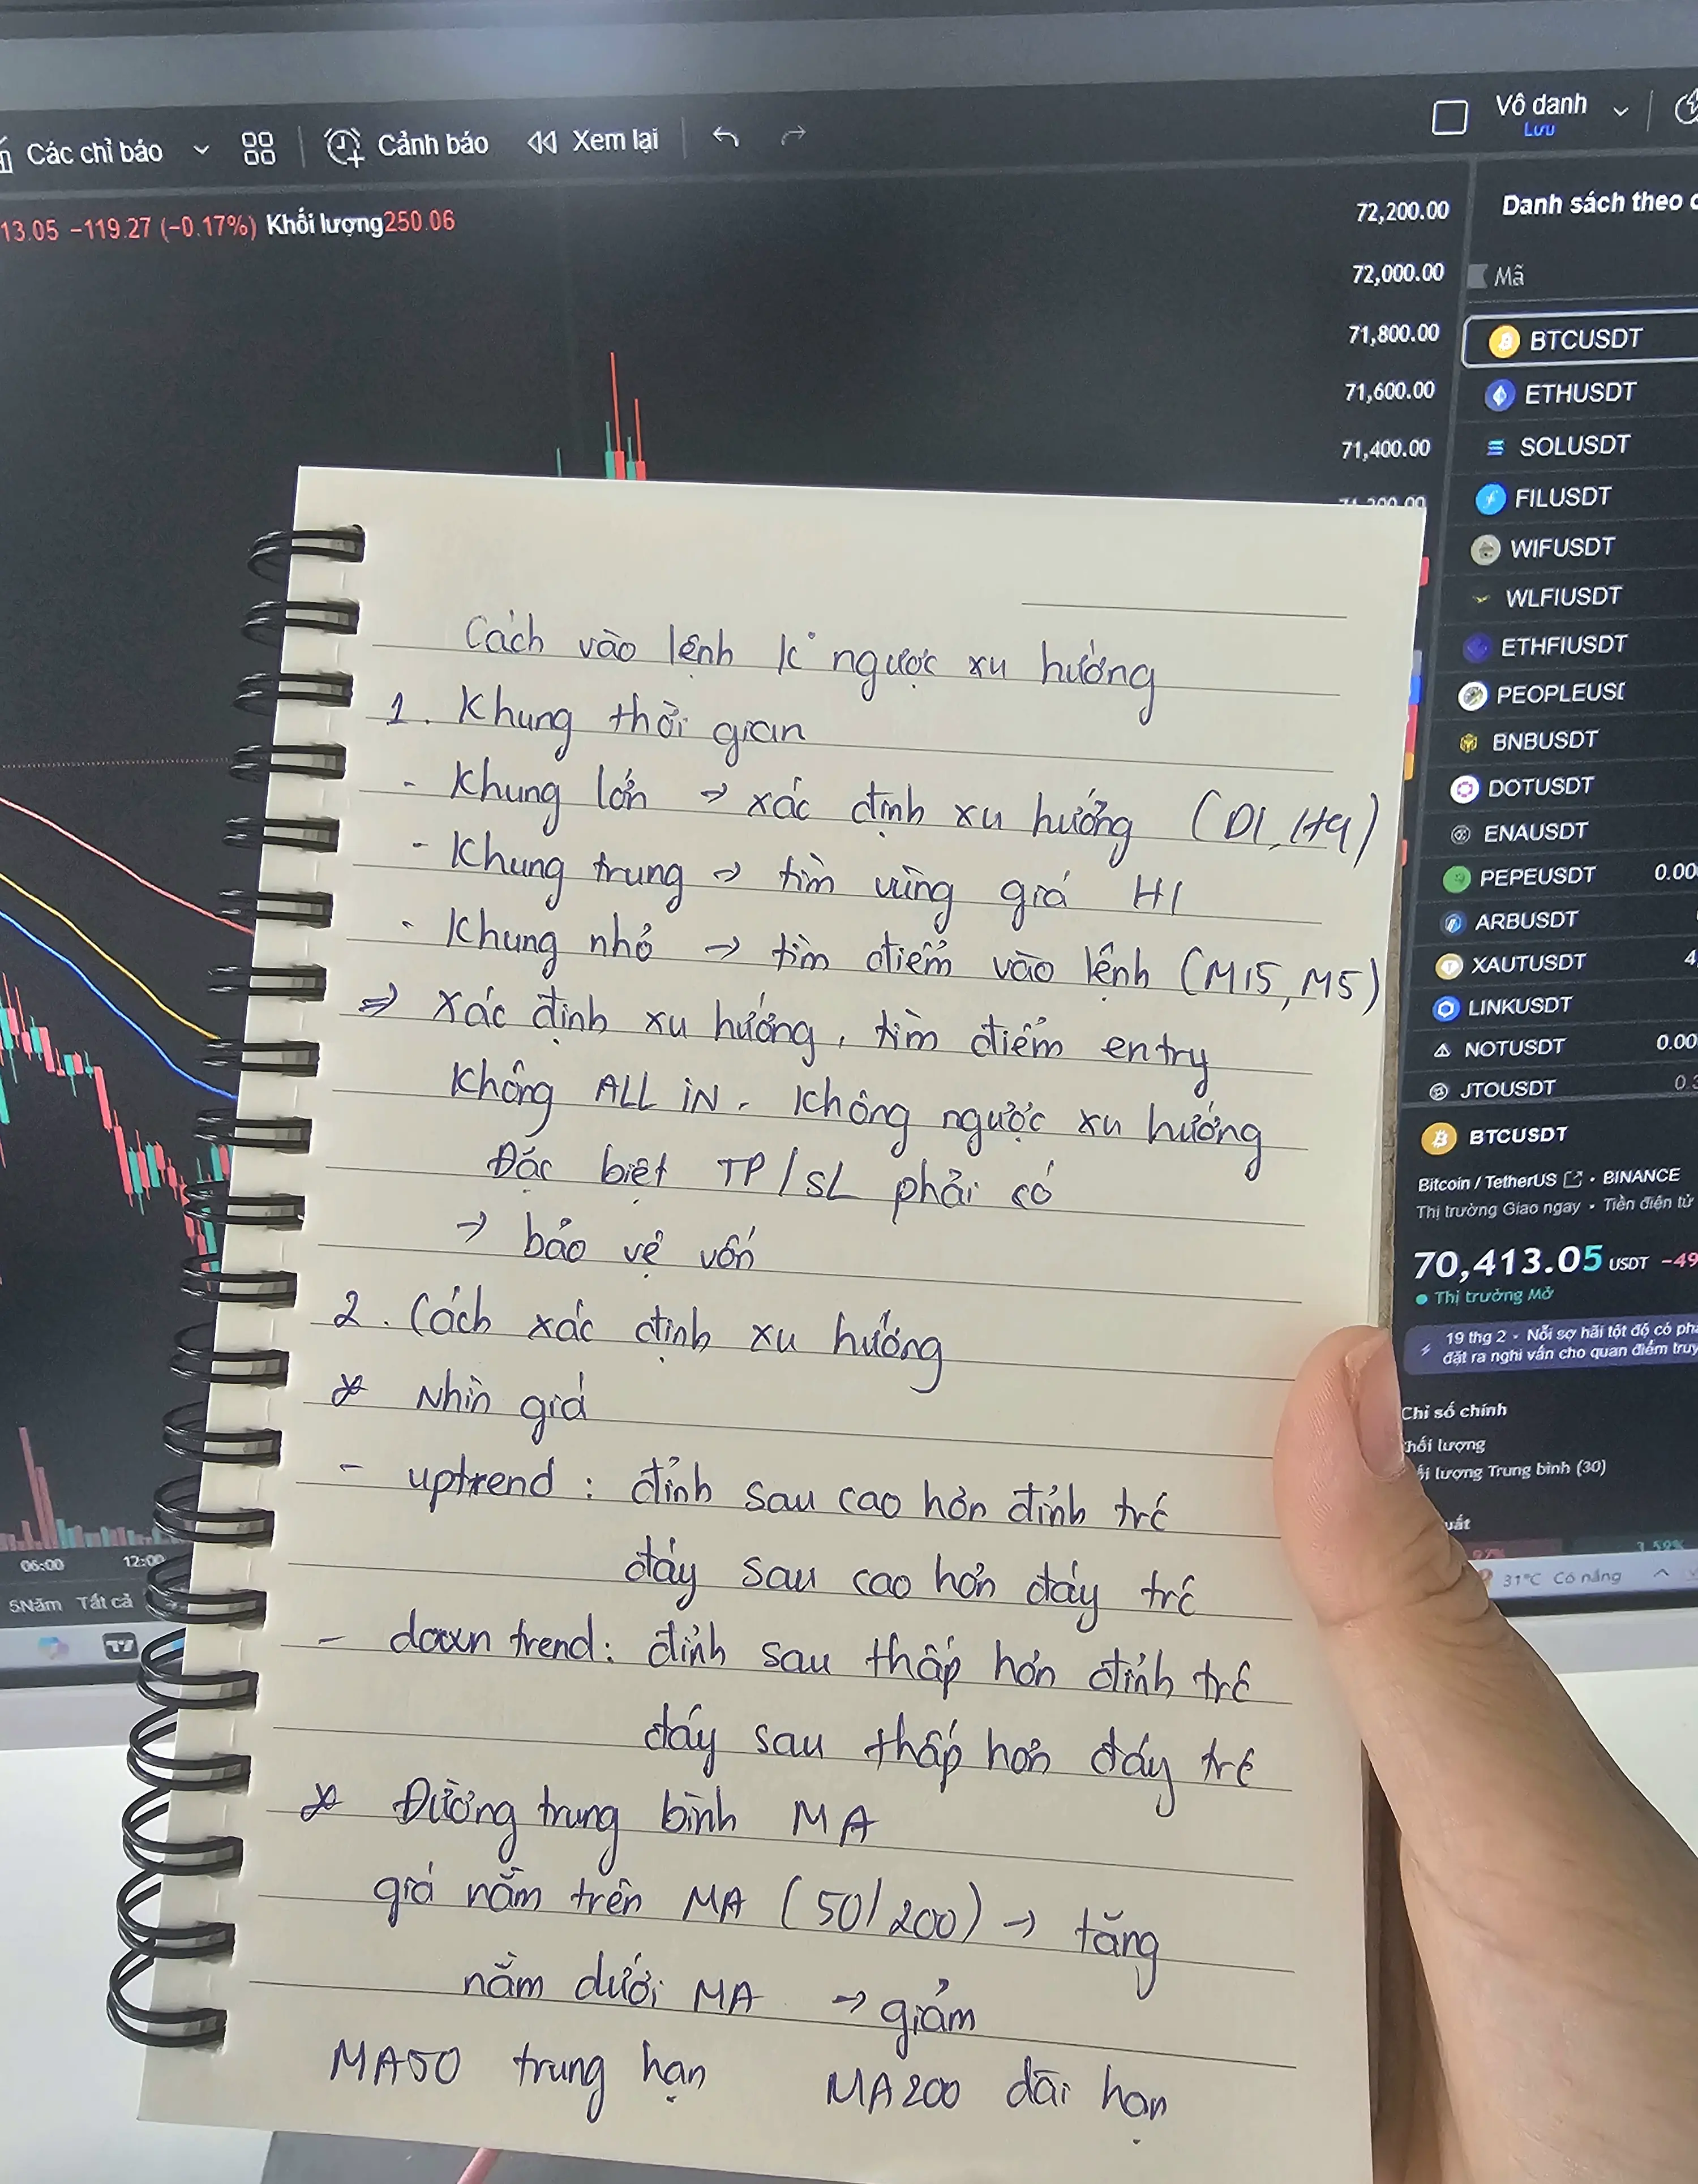 Các chỉ báo
Cảnh báo
Xem lại
Vô danh
Lưu
13.05 −119.27 (−0.17%) Khối lượng 250.06
72,200.00
72,000.00
71,800.00
71,600.00
71,400.00
71,200.00
Danh sách theo
Mã
BTCUSDT
ETHUSDT
SOLUSDT
FILUSDT
WIFUSDT
WLFIUSDT
ETHFIUSDT
PEOPLEUSD
BNBUSDT
DOTUSDT
ENAUSDT
PEPEUSDT 0.00
ARBUSDT
XAUTUSDT 4
LINKUSDT
NOTUSDT 0.00
JTOUSDT 0.3
BTCUSDT
Bitcoin / TetherUS • BINANCE
Thị trường Giao ngay • Tiền điện tử
70,413.05 USDT −49
Thị trường Mở
19 thg 2 • Nỗi sợ hãi tột độ có
đặt ra nghi vấn cho quan điểm
Chỉ số chính
hối lượng
lượng Trung bình (30)
uất
3.59%
31°C Có nắng
06:00 12:00
5Năm Tất cả
Cách vào lệnh k ngược xu hướng
1. Khung thời gian
- Khung lớn → xác định xu hướng (D1, H4)
- Khung trung → tìm vùng giá H1
- Khung nhỏ → tìm điểm vào lệnh (M15, M5)
⇒ xác định xu hướng, tìm điểm entry
Không ALL iN. Không ngược xu hướng
Đặc biệt TP/SL phải có
→ bảo vệ vốn
2. Cách xác định xu hướng
* Nhìn giá
- uptrend : đỉnh sau cao hơn đỉnh trc
đáy sau cao hơn đáy trc
- down trend: đỉnh sau thấp hơn đỉnh trc
đáy sau thấp hơn đáy trc
* Đường trung bình MA
giá nằm trên MA (50/200) → tăng
nằm dưới MA → giảm
MA50 trung hạn MA200 dài hạn